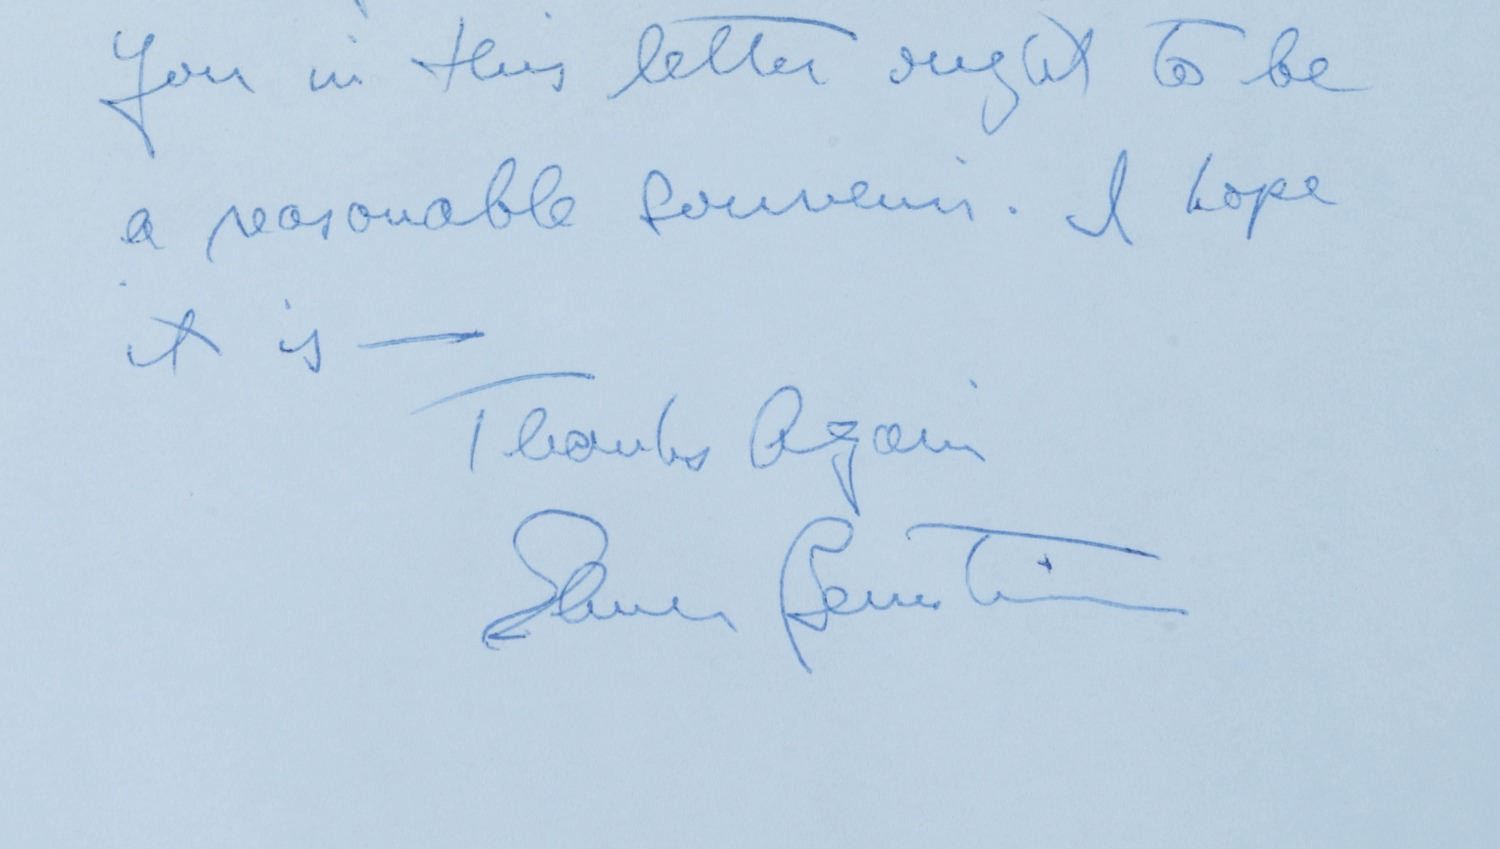 you in this letter ought to be
a reasonable souvenir. I hope
it is —
Thanks Again
Elmer Bernstein